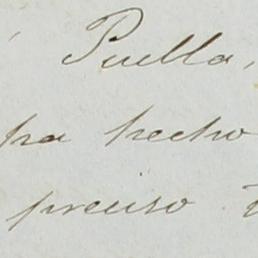 Puella,
ha hecho
preciso